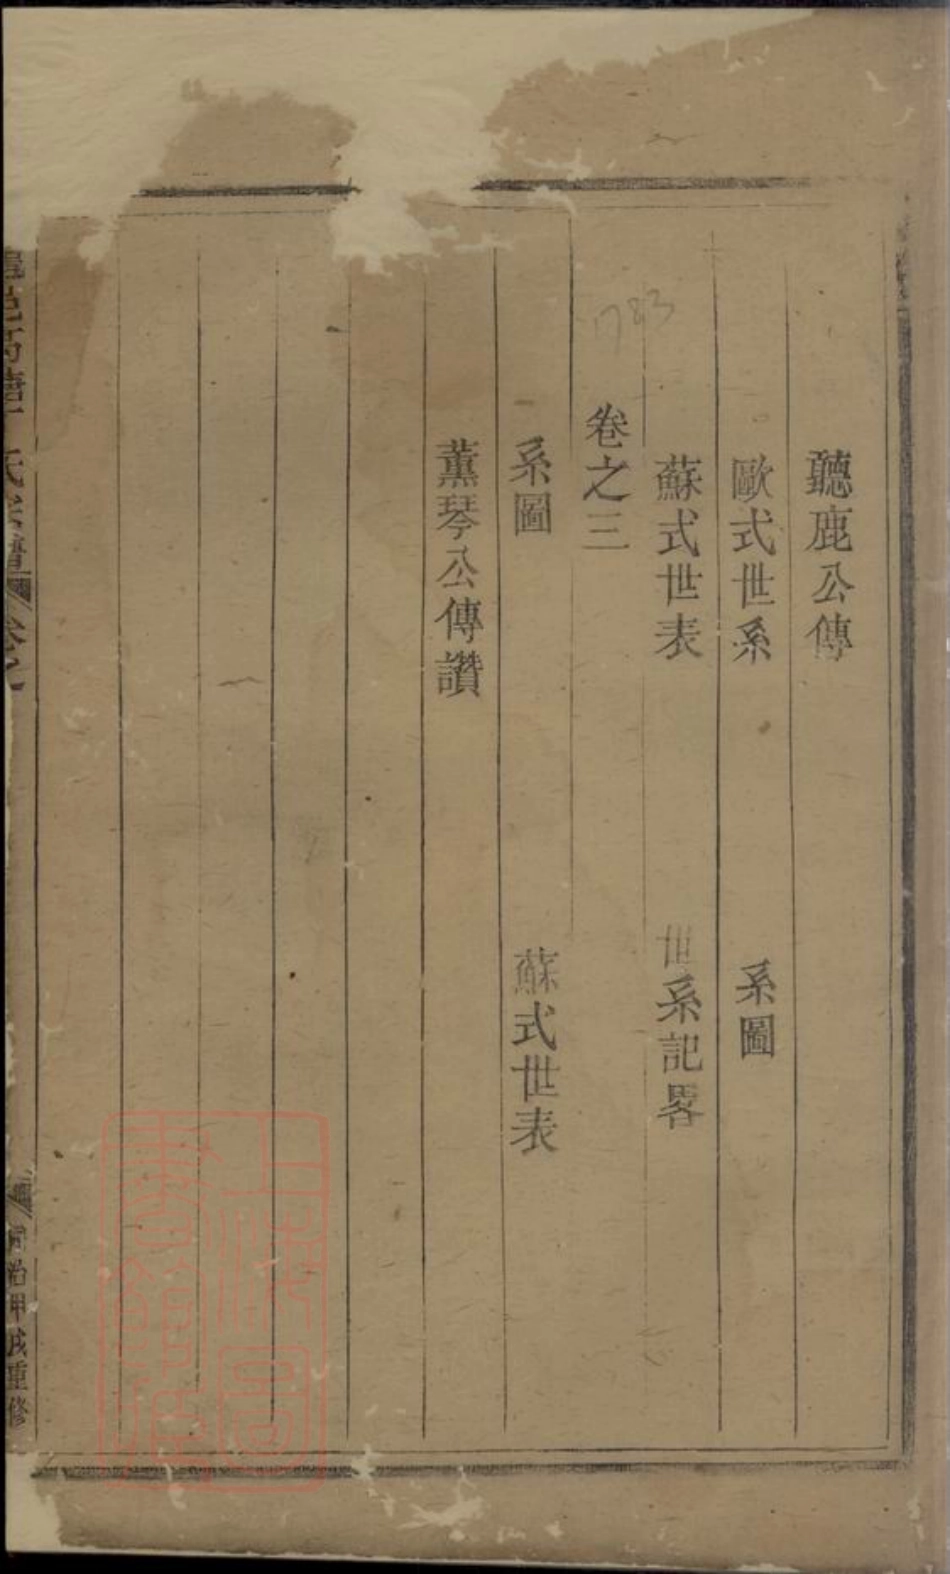 聽鹿公傳
歐式世系 系圖
蘇式世表 世系記畧
1783
卷之三
系圖 蘇式世表
薰琴公傳讚
邑高塘丁氏宗譜 卷之
同治甲戌重修
上海圖書館藏